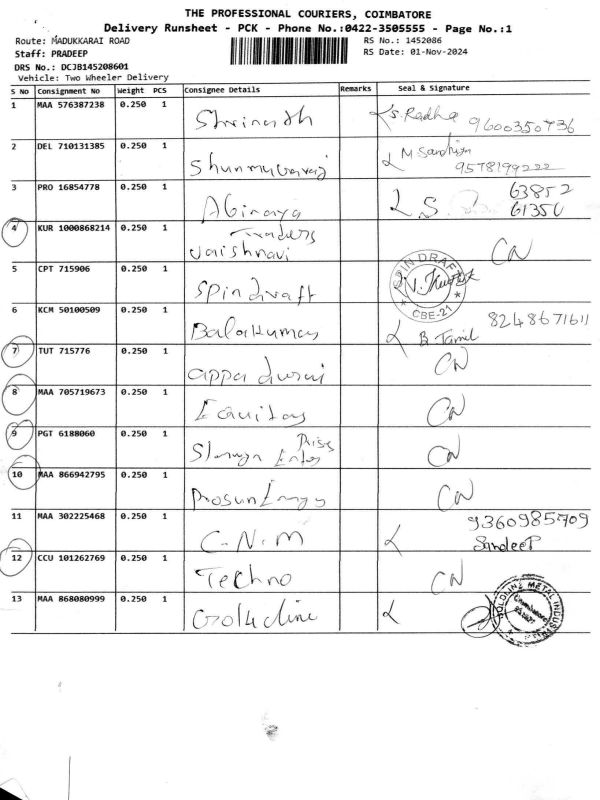 THE PROFESSIONAL COURIERS, COIMBATORE
Delivery Runsheet - PCK - Phone No.:0422-3505555 - Page No.:1
Route: MADUKKARAI ROAD RS No.: 1452086
Staff: PRADEEP RS Date: 01-Nov-2024
DRS No.: DCJB145208601
Vehicle: Two Wheeler Delivery
S No Consignment No Weight PCS Consignee Details Remarks Seal & Signature
1 MAA 576387238 0.250 1 Shrinath S. Radha 9600350736
2 DEL 710131385 0.250 1 Shunmugaraj M Sandhiya
9578199222
3 PRO 16854778 0.250 1 Abinaya S. 63852
61350
4 KUR 1000868214 0.250 1 Traders
Vaishnavi CN
5 CPT 715906 0.250 1 Spindraft SPIN DRAFT CBE-21
6 KCM 50100509 0.250 1 Balakumar B Tamil 8248671611
7 TUT 715776 0.250 1 appadurai CN
8 MAA 705719673 0.250 1 Equitas CN
9 PGT 6188060 0.250 1 CN
10 MAA 866942795 0.250 1 CN
11 MAA 302225468 0.250 1 C.N.M 9360985709
Sandeep
12 CCU 101262769 0.250 1 Techno CN
13 MAA 868080999 0.250 1 Goldline GOLDLINE METAL INDUSTRIES